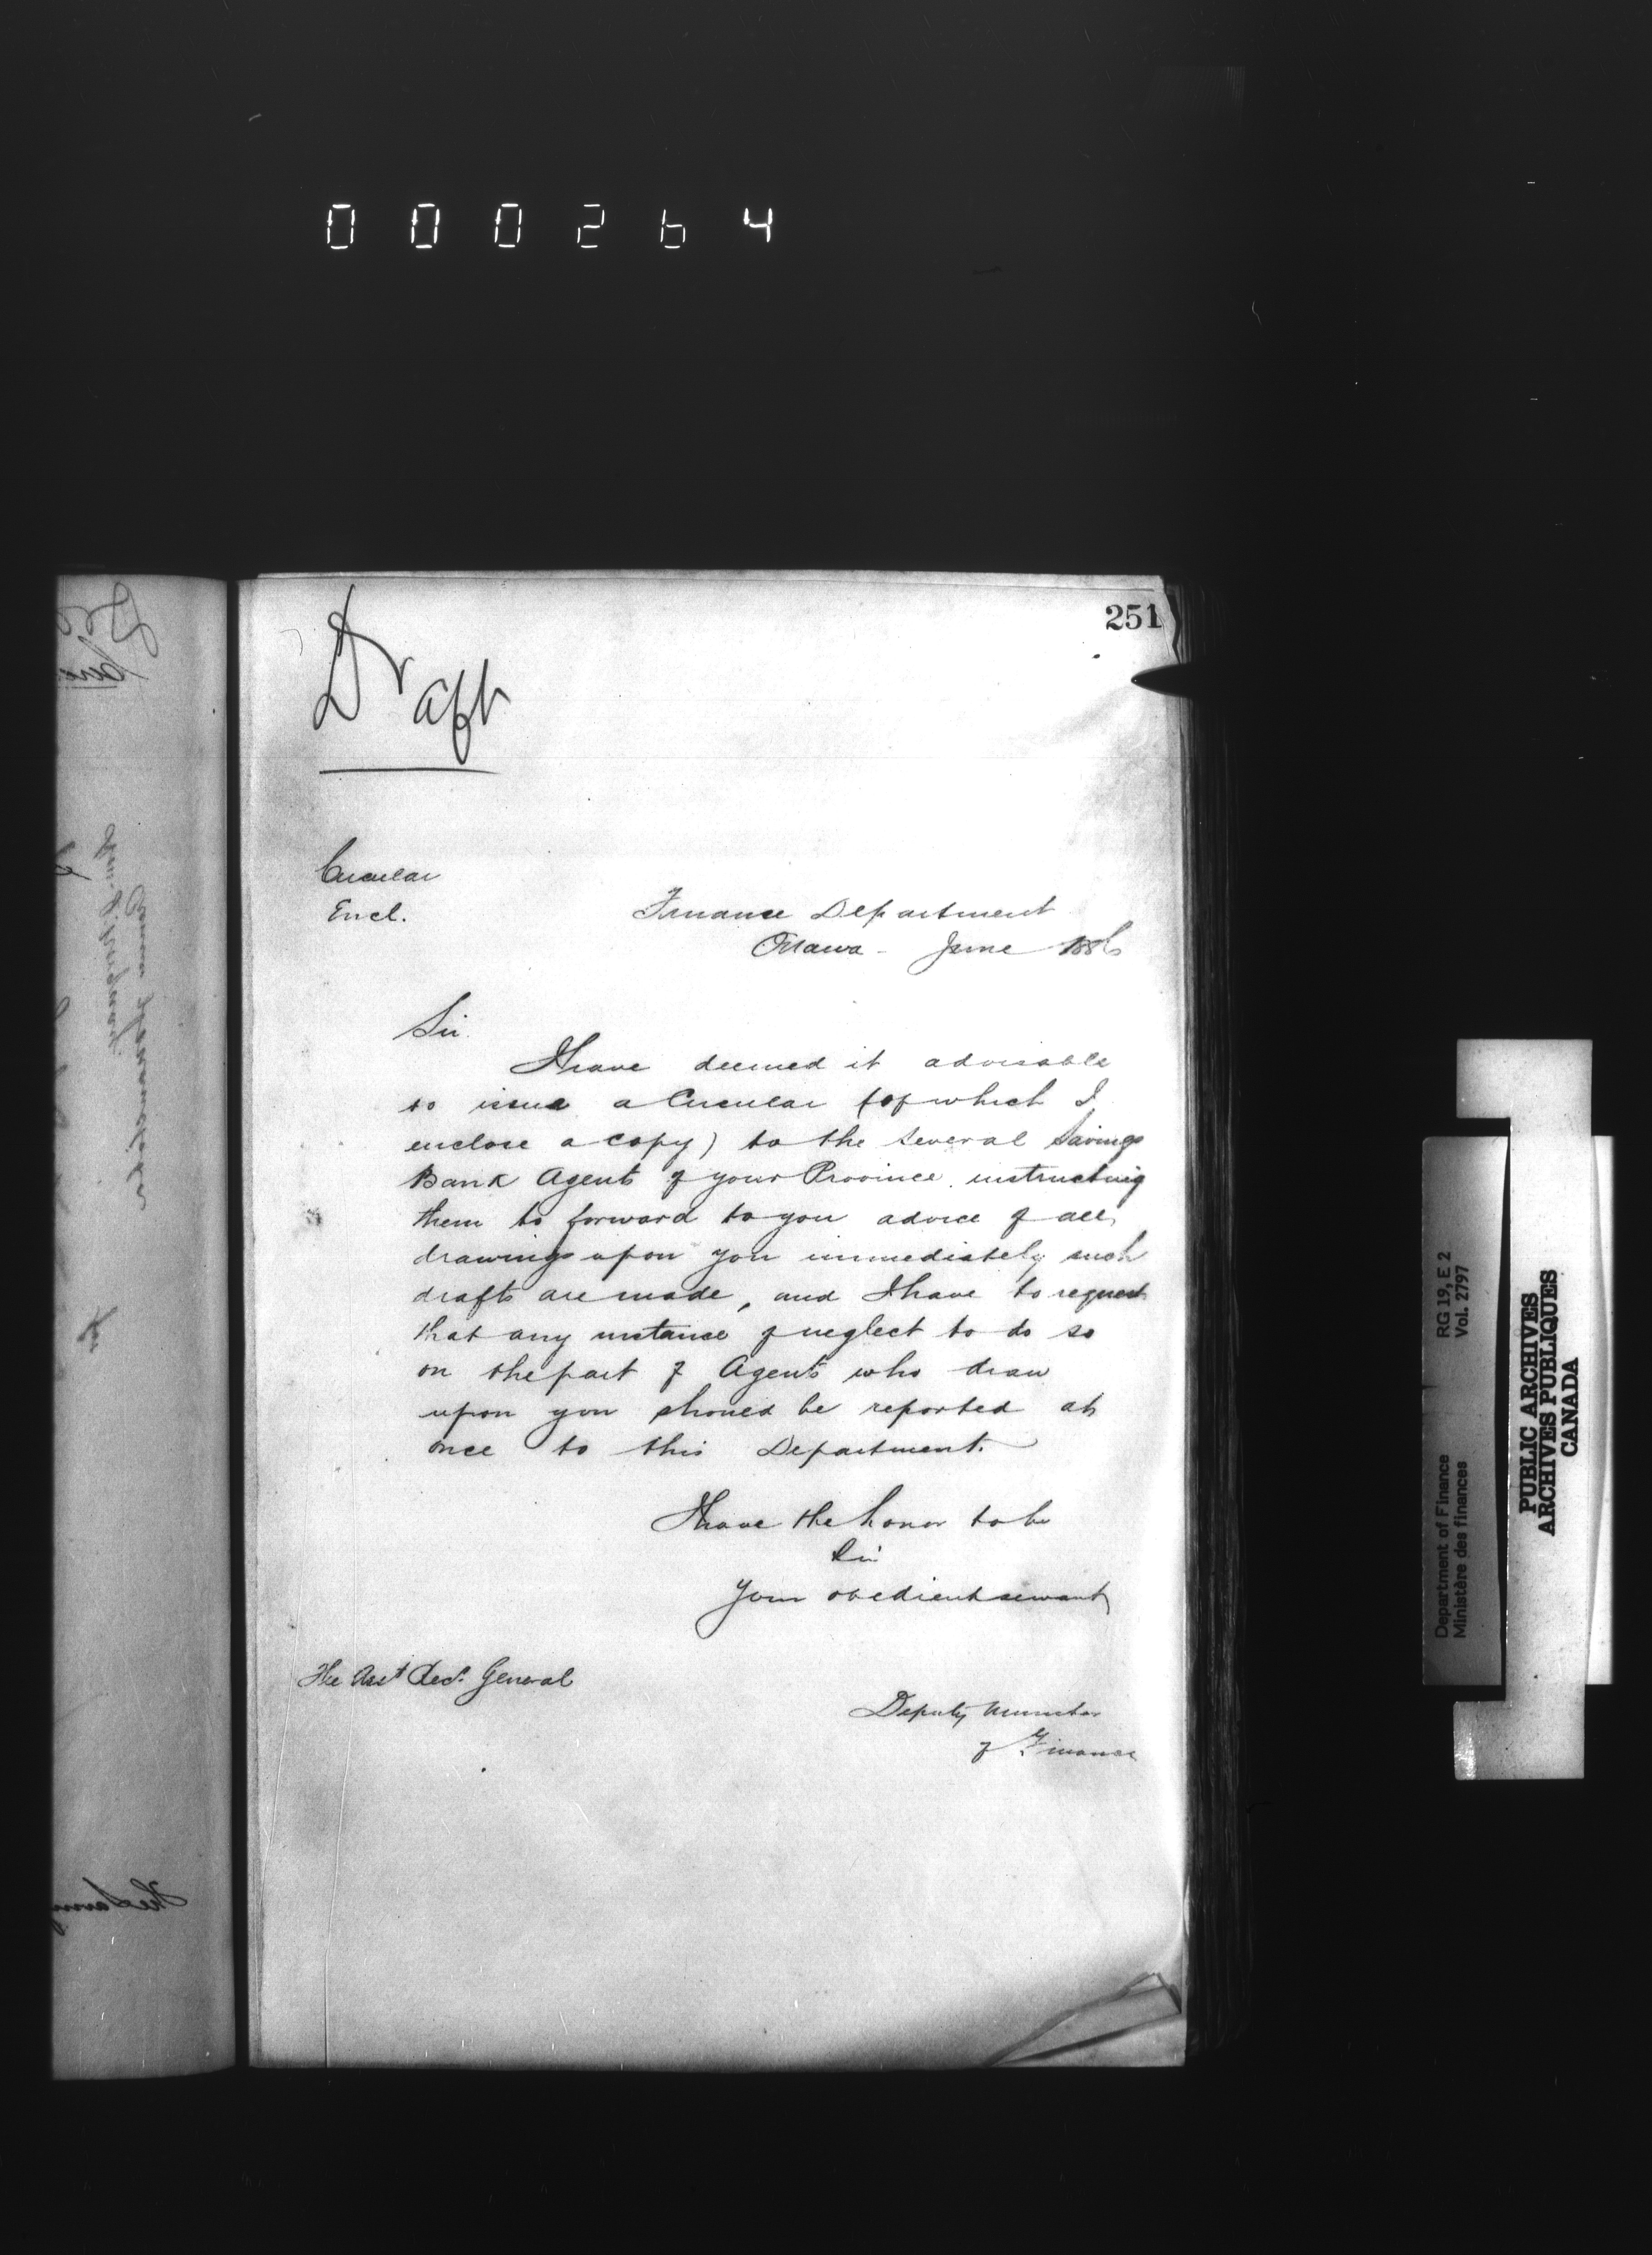 000264
251
Draft
Circular
Encl.
Finance Department
Ottawa - June 1886
Sir.
I have deemed it advisable
to issue a Circular (of which I
enclose a copy) to the several Savings
Bank Agents of your Province instructing
them to forward to you advice of all
drawings upon you immediately such
drafts are made, and I have to request
that any instance of neglect to do so
on the part of Agents who draw
upon you should be reported at
once to this Department.
I have the honor to be
Sir
Your obedient servant
The Asst Recr. General
Deputy Minister
of Finance
Department of Finance RG 19, E 2
Ministère des finances Vol. 2797
PUBLIC ARCHIVES
ARCHIVES PUBLIQUES
CANADA